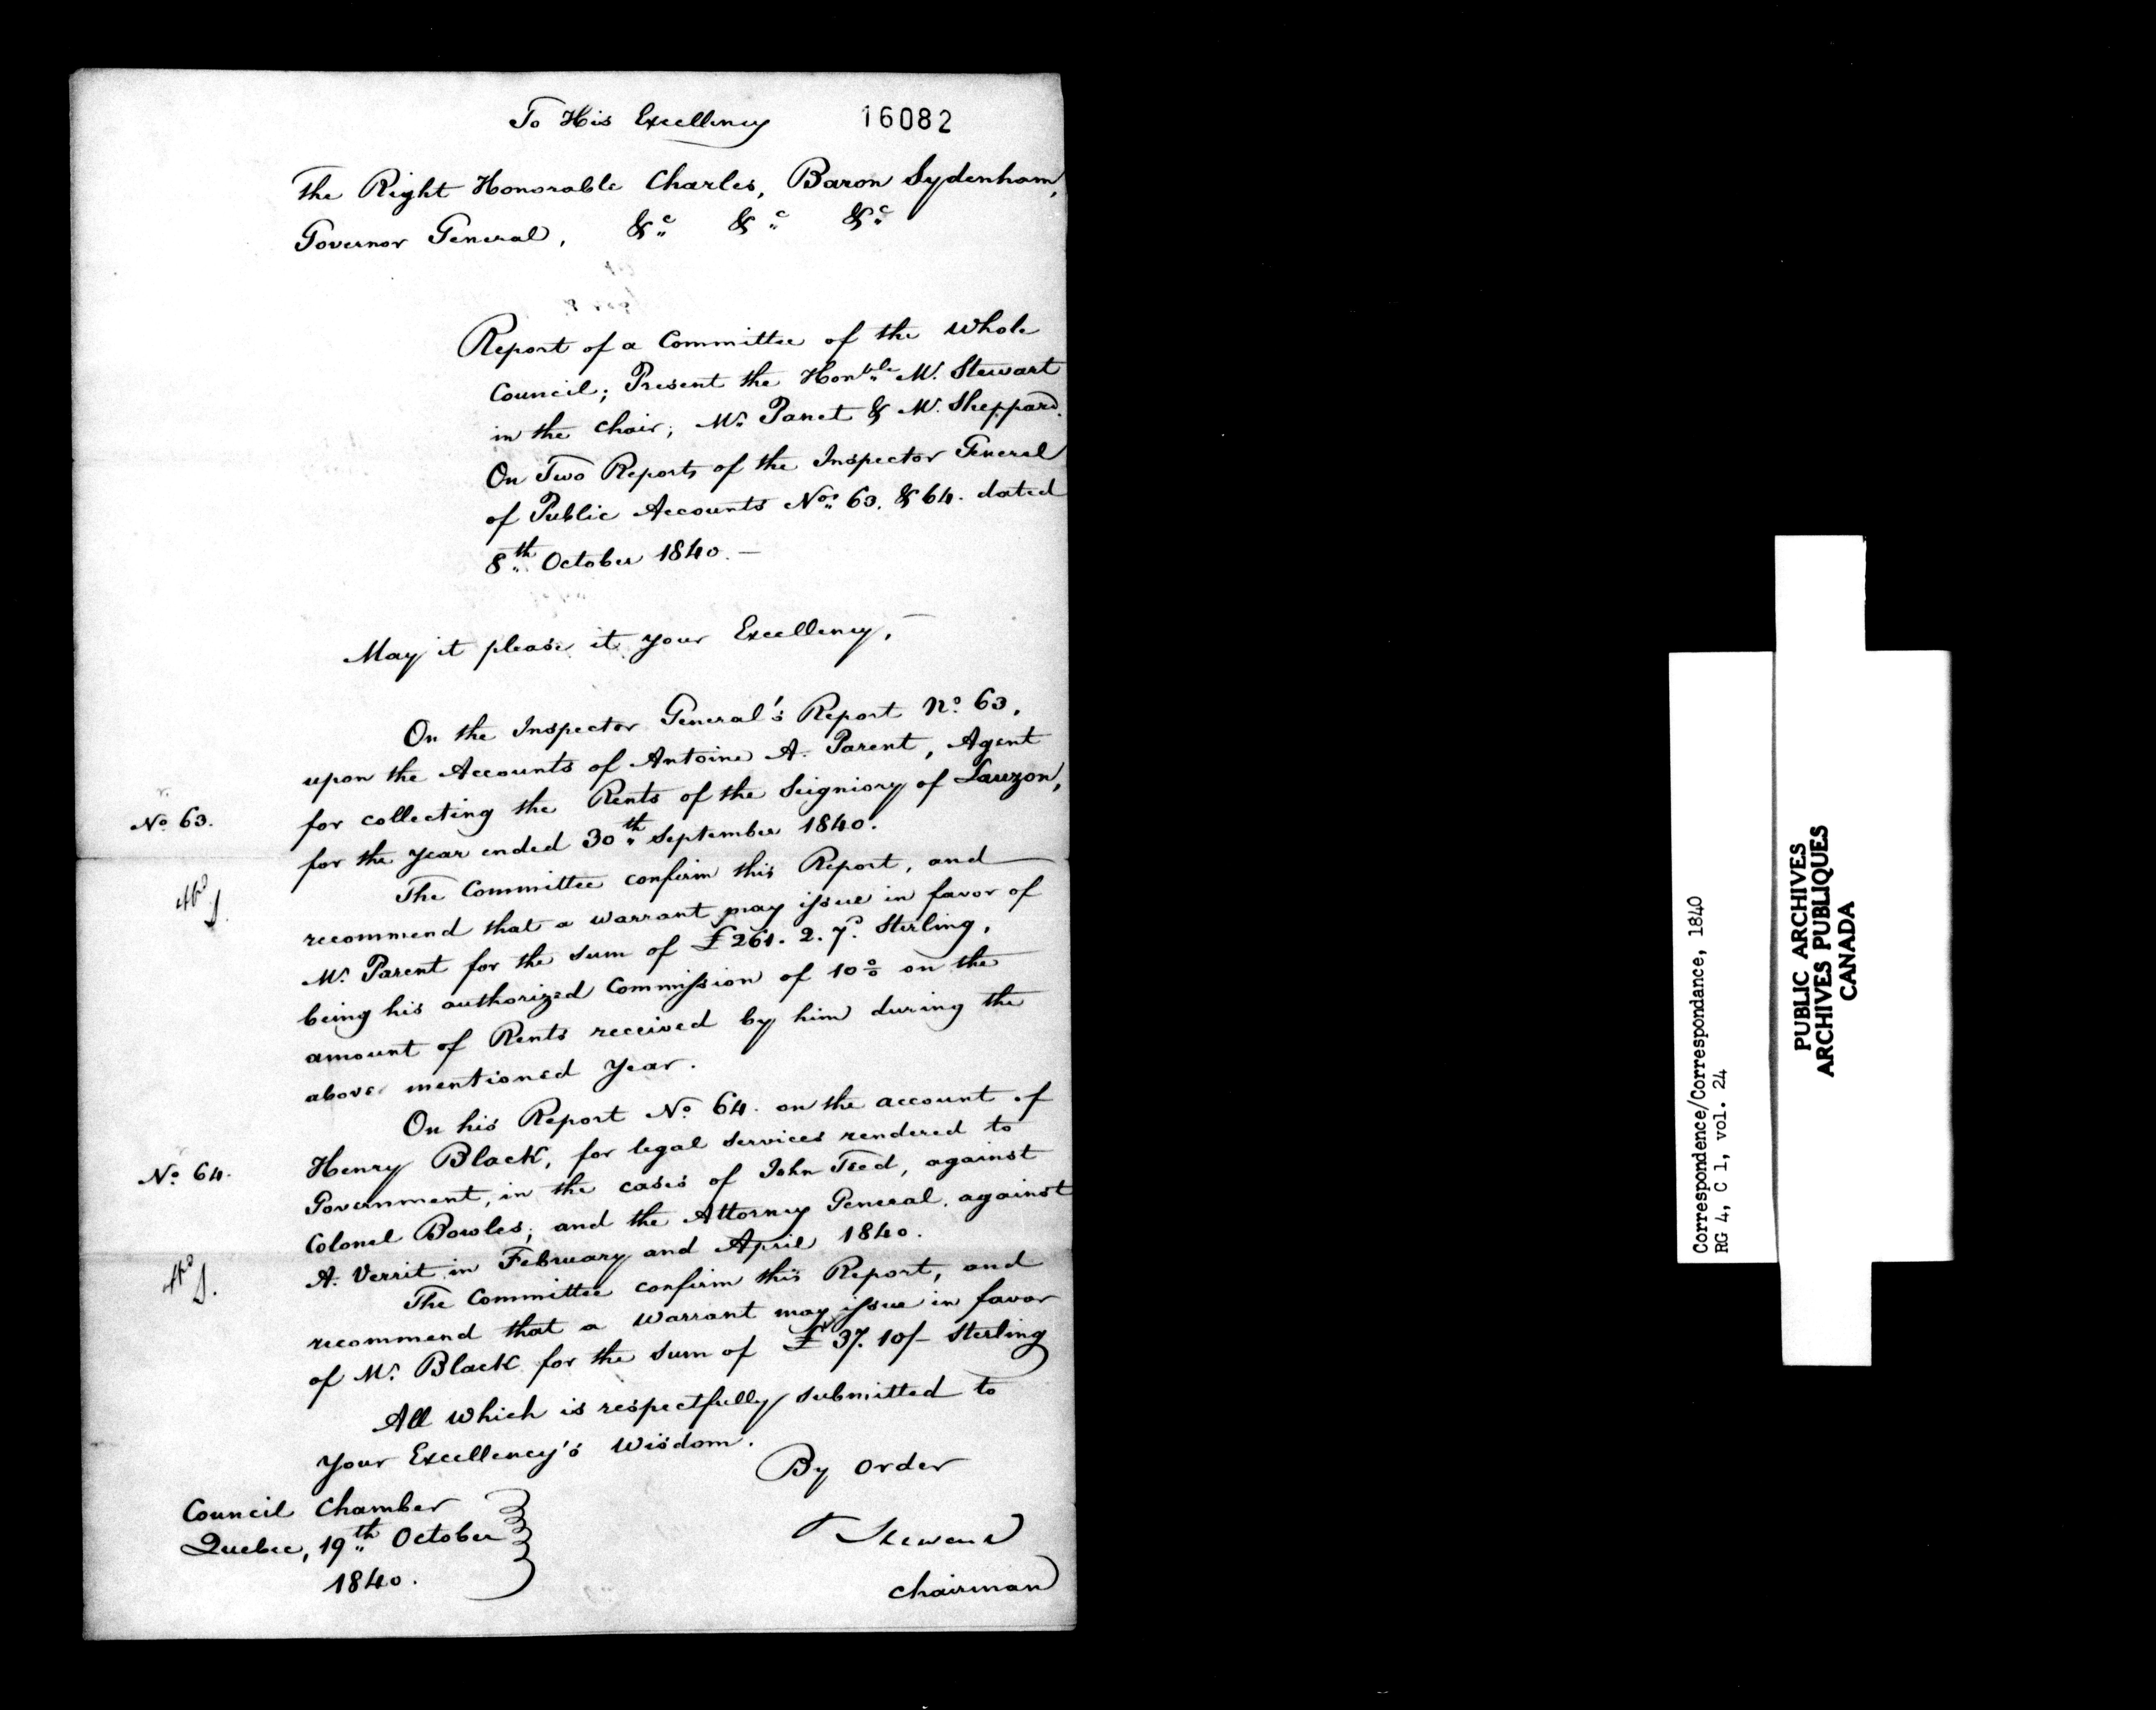 To His Excellency
16082
The Right Honorable Charles, Baron Sydenham,
Governor General, &c &c &c
Report of a Committee of the whole
Council; Present the Honble Mr. Stewart
in the Chair; Mr. Panet & Mr. Sheppard.
On Two Reports of the Inspector General
of Public Accounts Nos. 63. & 64. dated
8th October 1840. —
May it please it your Excellency,
On the Inspector General's Report No. 63,
upon the Accounts of Antoine A. Parent, Agent
for collecting the Rents of the Seigniory of Lauzon,
No. 63.
for the year ended 30th September 1840.
The Committee confirm this Report, and
recommend that a warrant may issue in favor of
Mr. Parent for the sum of £261. 2. 7d. Sterling,
being his authorized Commission of 10 % on the
amount of Rents received by him during the
above mentioned year.
On his Report No. 64. on the account of
Henry Black, for legal services rendered to
No. 64.
Government, in the cases of John Teed, against
Colonel Bowles; and the Attorney General, against
A. Verrit in February and April 1840.
The Committee confirm this Report, and
recommend that a Warrant may issue in favor
of Mr. Black for the sum of £37. 10/- Sterling
All which is respectfully submitted to
Your Excellency's Wisdom.
By Order
Council Chamber
Quebec, 19th October
1840.
Stewart
Chairman
Correspondence/Correspondance, 1840
RG 4, C 1, vol. 24
PUBLIC ARCHIVES
ARCHIVES PUBLIQUES
CANADA